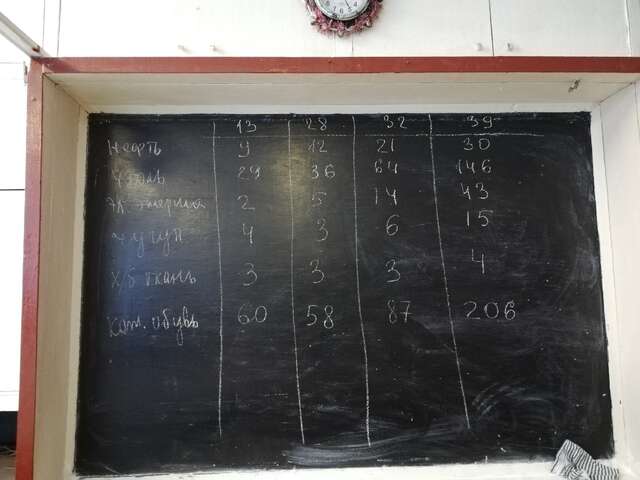 13 28 32 39
Нефть 9 12 21 30
Уголь 29 36 64 146
Эл. энергия 2 5 14 43
Чугун 4 3 6 15
Х/б ткань 3 3 3 4
Кож. обувь 60 58 87 206